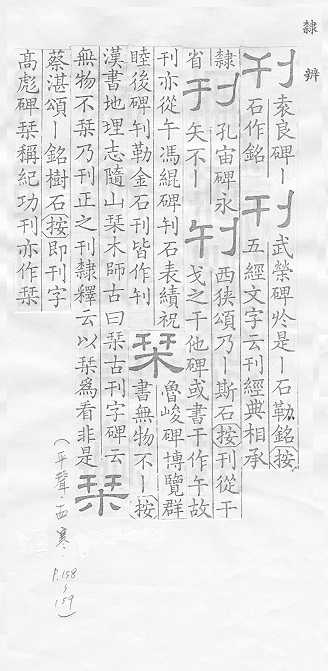 隸辨
刊
袁良碑丨
石作銘
刊
武榮碑於是丨石勒銘按
五經文字云刊經典相承
隸
省
刊
孔宙碑永
矢不丨
刊
西狹頌乃丨斯石按刊從干
戈之干他碑或書干作午故
刊亦從午馮緄碑刊石表績祝
睦後碑刋勒金石刊皆作刋
栞
魯峻碑博覽群
書無物不丨按
漢書地理志隨山栞木師古曰栞古刊字碑云
無物不栞乃刊正之刊隸釋云以栞為看非是
栞
蔡湛頌丨銘樹石按即刊字
高彪碑栞稱紀功刊亦作栞
(平聲·西寒.
P.158
~
159)